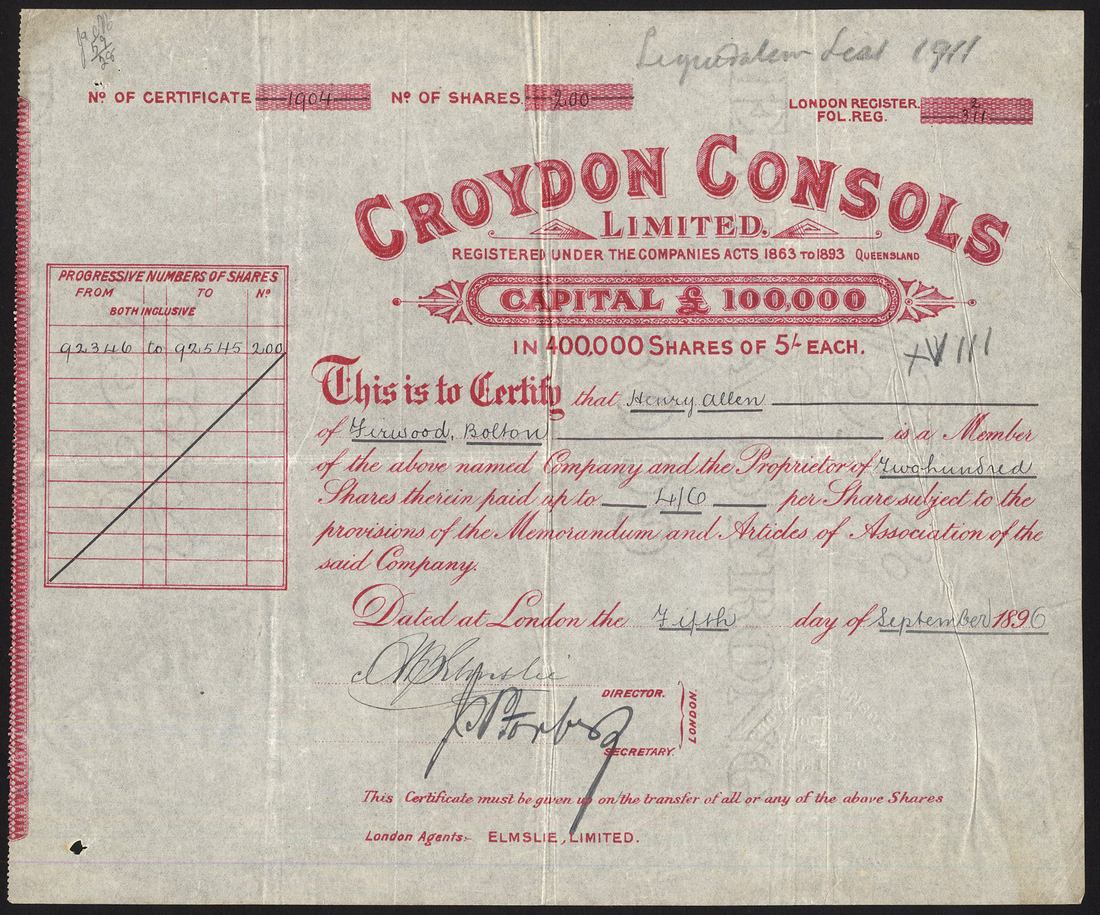 1911
Nº OF CERTIFICATE 1904 Nº OF SHARES. 200
LONDON REGISTER. 2
FOL. REG. 311
CROYDON CONSOLS
LIMITED.
REGISTERED UNDER THE COMPANIES ACTS 1863 TO 1893 QUEENSLAND
CAPITAL £ 100,000
IN 400,000 SHARES OF 5/- EACH.
XVIII
PROGRESSIVE NUMBERS OF SHARES
FROM TO Nº
BOTH INCLUSIVE
92346 to 92545 200
This is to Certify that Henry Allen
of Firwood, Bolton is a Member
of the above named Company and the Proprietor of Two hundred
Shares therein paid up to 4/6 per Share subject to the
provisions of the Memorandum and Articles of Association of the
said Company.
Dated at London the Fifth day of September 1896
DIRECTOR.
LONDON.
SECRETARY.
This Certificate must be given up on the transfer of all or any of the above Shares
London Agents:- ELMSLIE, LIMITED.